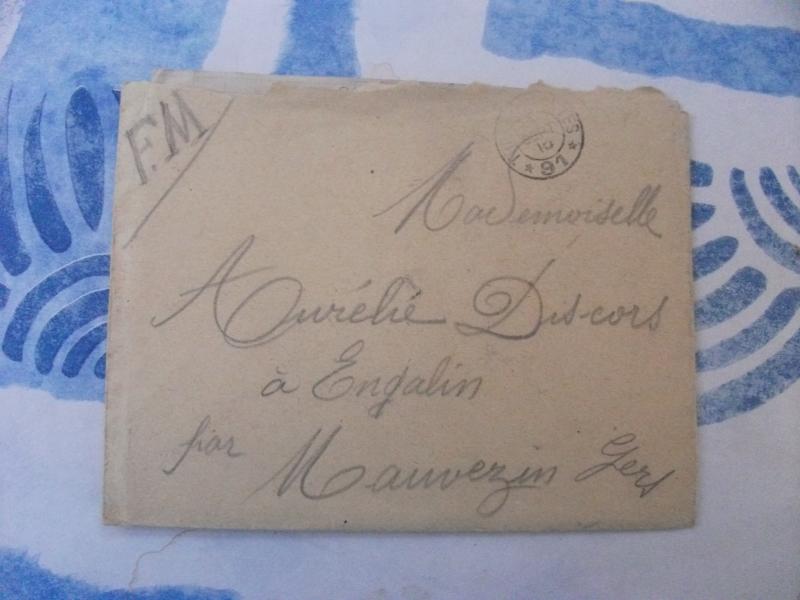 F.M
* 91 *
Mademoiselle
Aurélie Discors
à Engalin
par Mauvezin Gers